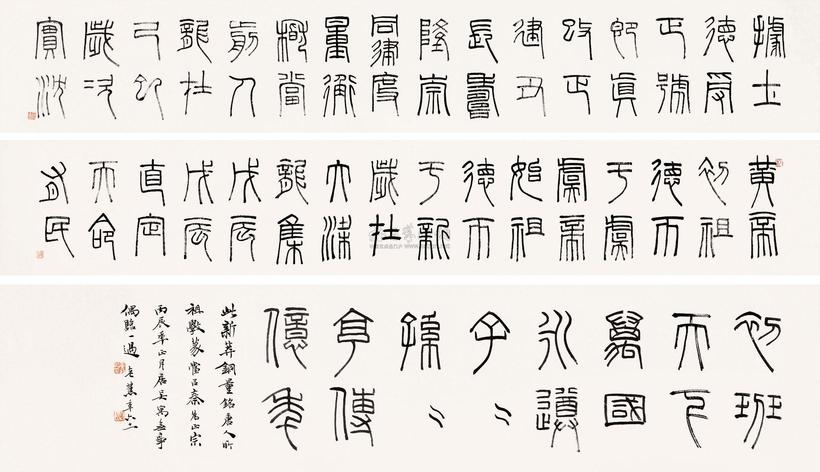 據土
德受
正號
即真
改正
建丑
長壽
隆崇
同律度
量衡
稽當
前人
龍在
己巳
歲次
實沈
黃帝
初祖
德帀
于虞
虞帝
始祖
德帀
于新
歲在
大梁
龍集
戊辰
戊辰
直定
天命
有民
初班
天下
萬國
永遵
子〻
孫〻
亨傳
億年
此新莽銅量銘唐人所
祖數篆當以秦為正宗
丙辰年正月居吳寓無事
偶臨一過 老蕉年六二